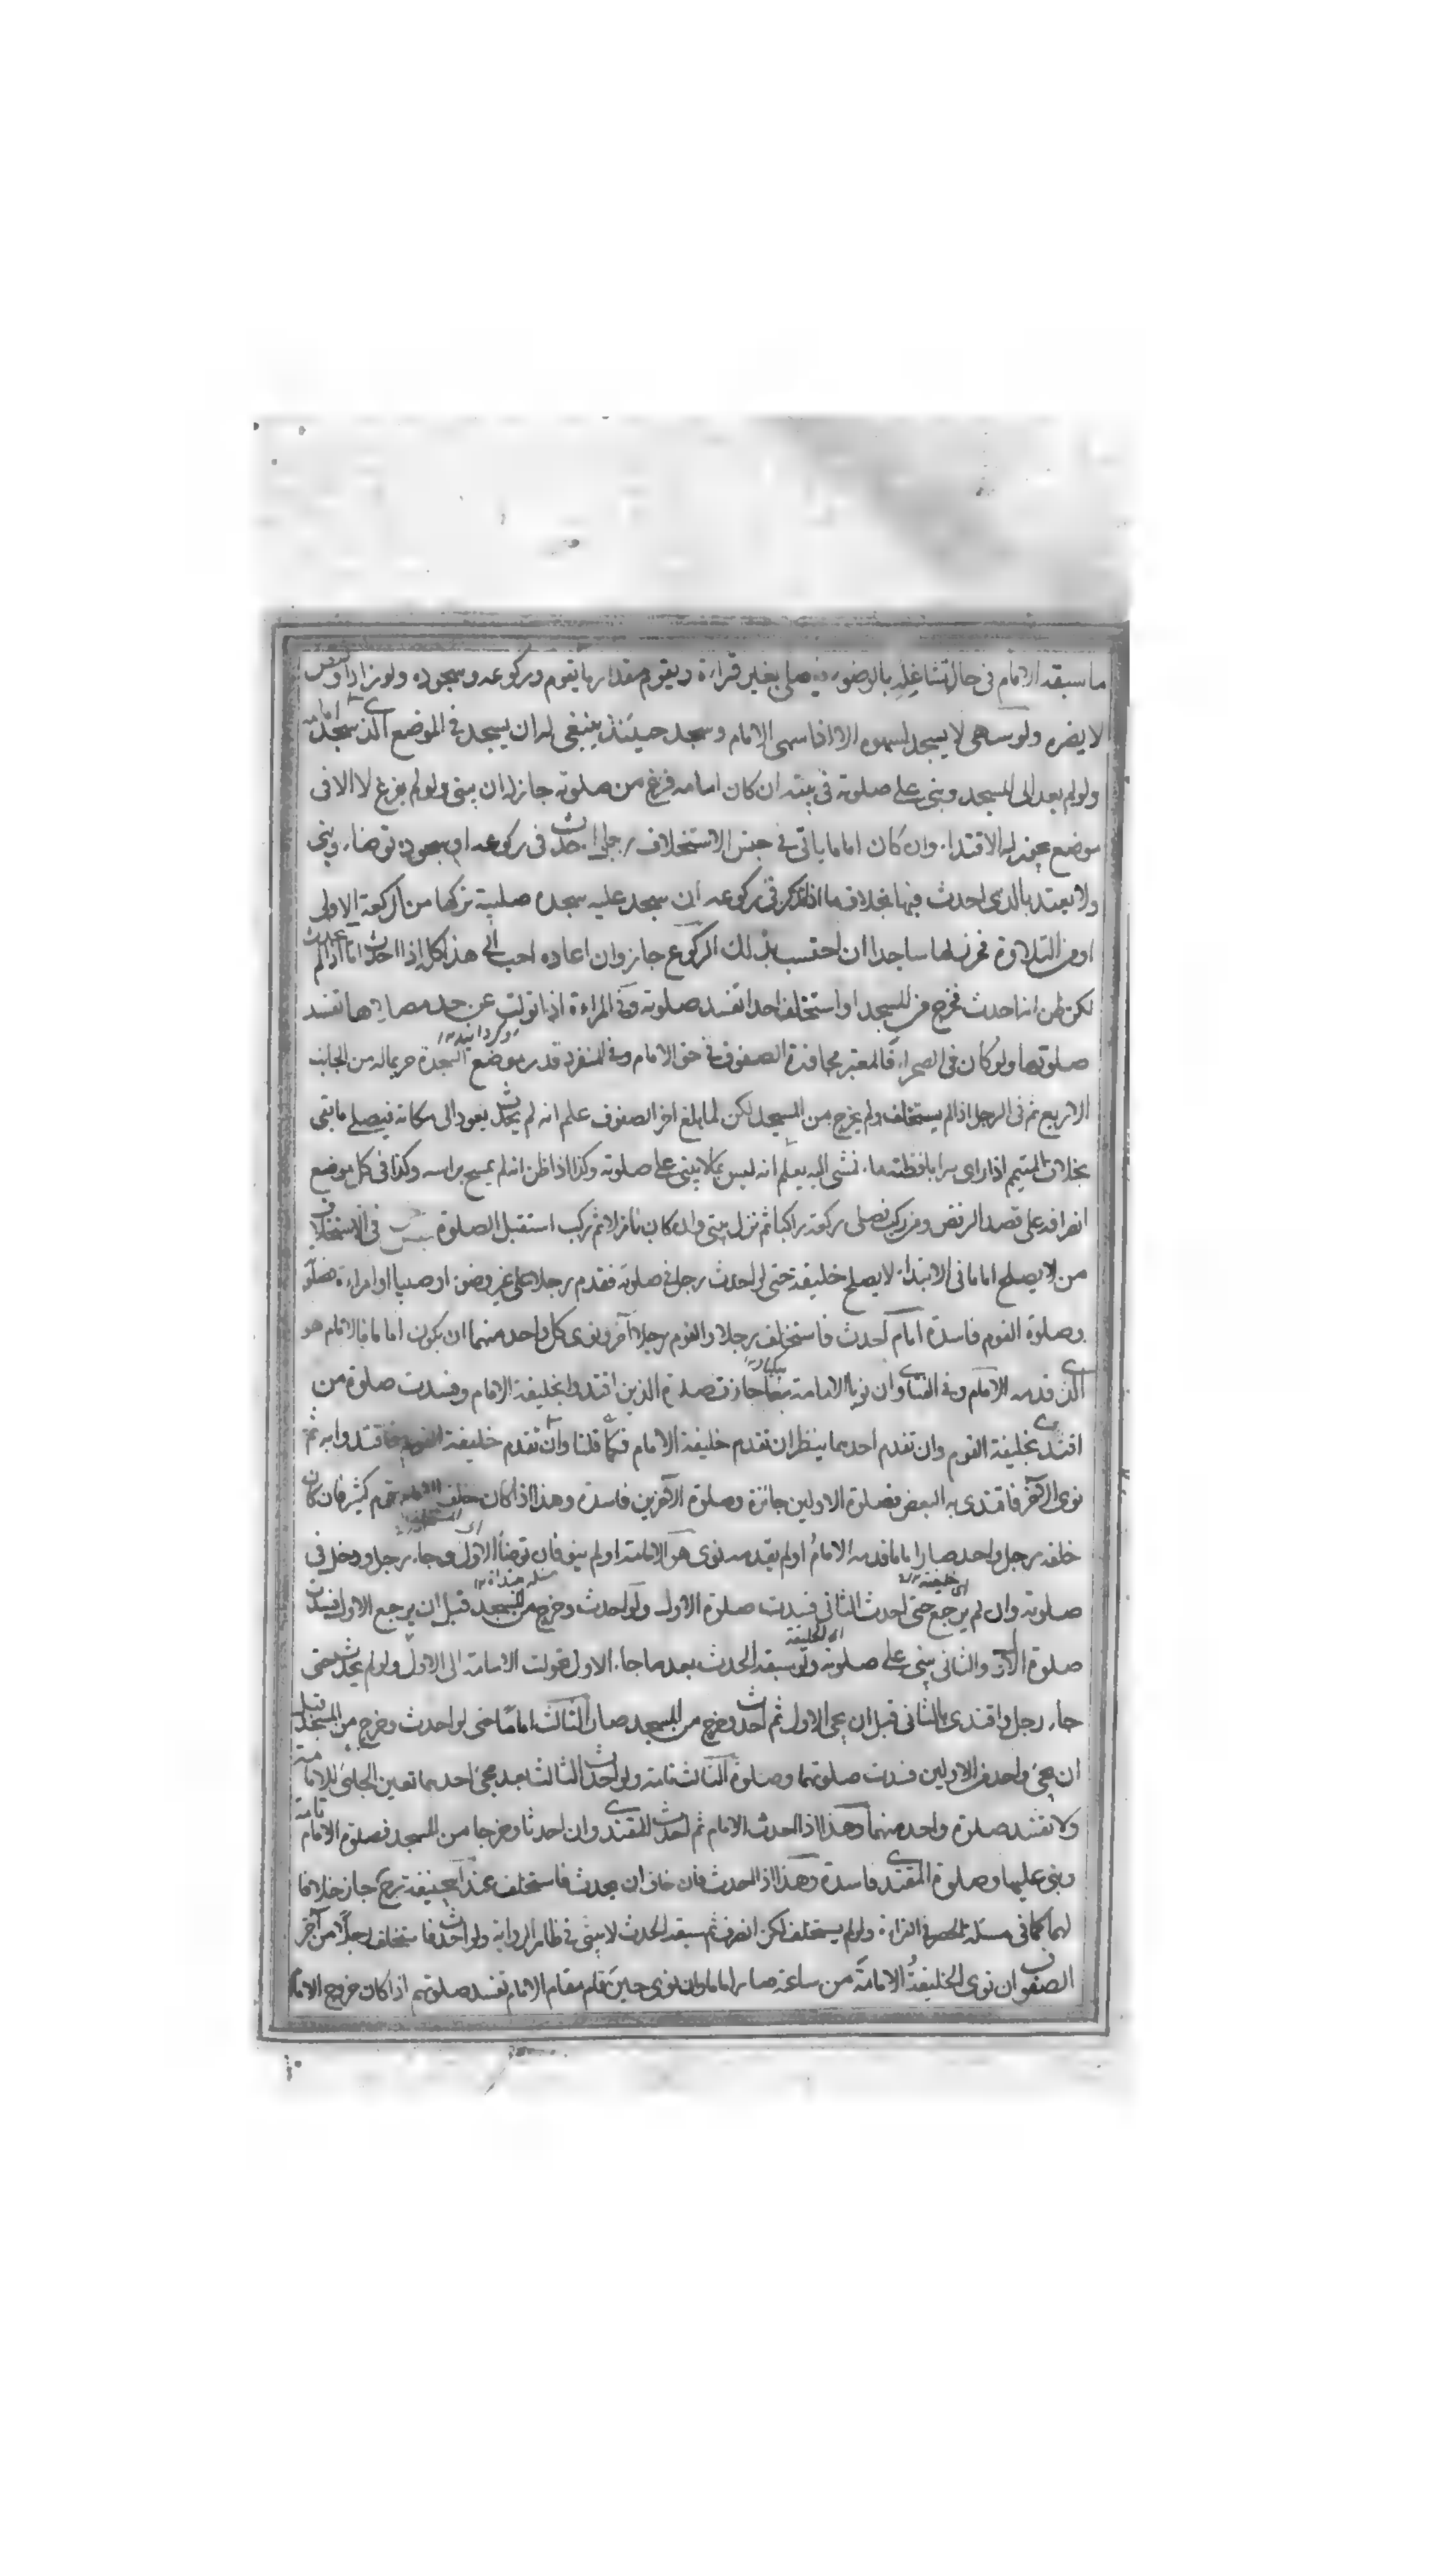 ما سبقه الامام فى حال تشاغله بالوضوء فيصلى بغير قراءة ويقوم مقدار ما يقوم وركوعه وسجوده ولو زاد او نقص
لا يضره ولو سهى لا يسجد لسهوه الا اذا سهى الامام وسجد حينئذ ينبغى له ان يسجد فى الموضع الذى سجد امامه
ولو لم يعد الى المسجد وبنى على صلوته فى بيته ان كان امامه فرغ من صلوته جاز له ان يبنى ولو لم يفرغ لا الا فى
موضع يجوز له الاقتداء وان كان اماما ياتى فى جنس الاستخلاف رجل احدث فى ركوعه او سجوده توضاء وبنى
ولا يعتد بالذى احدث فيها بخلاف ما اذا تذكر فى ركوعه ان سجد عليه سجدة صلبية تركها من الركعة الاولى
او من التلاوة فخر لها ساجدا ان احتسب بذلك الركوع جاز وان اعاده احب الى هذا كله اذا احدث اما اذا لم يحدث
لكن ظن انه احدث فخرج من المسجد او استخلف احدا تفسد صلوته وفى المراءة اذا تولت عن حد مصلاها تفسد
صلوتها ولو كان فى الصحراء فالمعتبر مجاوزة الصفوف فى حق الامام وفى المنفرد قدر موضع السجدة حريما له من الجانب
الاربع ثم فى الرجل اذا لم يستخلف ولم يخرج من المسجد لكن لما بلغ اخر الصفوف علم انه لم يحدث يعود الى مكانه فيصلى ما بقى
بخلاف المتيمم اذا راى سرابا فظنه ماء فمشى اليه يعلم انه ليس بماء لا يبنى على صلوته وكذا اذا ظن انه لم يمسح براسه وكذا فى كل موضع
انصرافه على قصد الرفض ومن ركب فصلى ركعة راكبا ثم نزل يبنى وان كان نازلا ثم ركب استقبل الصلوة جنس فى الاستخلاف
من لا يصلح اماما فى الابتداء لا يصلح خليفة حتى لو احدث رجل فى صلوته فقدم رجلا على غير وضوء او صبيا او امراءة فصلوته
وصلوة القوم فاسدة امام احدث فاستخلف رجلا والقوم رجلا اخر ونوى كل واحد منهما ان يكون اماما فالامام هو
الذى قدمه الامام وفى الفتاوى ان نويا الامامة معا جازت صلوة الذين اقتدوا بخليفة الامام وفسدت صلوة من
اقتدى بخليفة القوم وان تقدم احدهما ينظر ان تقدم خليفة الامام فكما قلنا وان تقدم خليفة القوم فاقتدوا به ثم
نوى الآخر فاقتدى به البعض فصلوة الاولين جائزة وصلوة الآخرين فاسدة وهذا اذا كان خلف الامام قوم كثير فان كان
خلفه رجل واحد صار اماما قدمه الامام او لم يقدمه نوى هو الامامة او لم ينو فان توضأ الاول وجاء رجل ودخل فى
صلوته وان لم يرجع حتى احدث الثانى فسدت صلوة الاول ولو احدث وخرج من المسجد قبل ان يرجع الاول فسدت
صلوة الاول والثانى يبنى على صلوته ولو سبقه الحدث بعد ما جاء الاول تحولت الامامة الى الاول ولو لم يحدث حتى
جاء رجل واقتدى بالثانى قبل ان يجئ الاول ثم احدث وخرج من المسجد صار الثالث اماما حتى لو احدث وخرج من المسجد قبل
ان يجئ واحد من الاولين فسدت صلوتهما وصلوة الثالث تامة ولو احدث الثالث بعد مجئ احدهما تعين الجائى للامامة
ولا تفسد صلوة واحد منهما وهذا اذا احدث الامام ثم احدث المقتدى وان احدثا وخرجا من المسجد فصلوة الامام تامة
وبنى عليها وصلوة المقتدى فاسدة وهذا اذا احدث فان خاف ان يحدث فاستخلف عند ابى حنيفة رح جاز خلافا
لهما كما فى مسئلة الحصر فى القراءة ولو لم يستخلف لكن انصرف ثم سبقه الحدث لا يبنى فى ظاهر الرواية ولو احدث فاستخلف رجلا من آخر
الصفوف ان نوى الخليفة الامامة من ساعته صار اماما وان نوى حين قام مقام الامام تفسد صلوتهم اذا كان خروج الامام